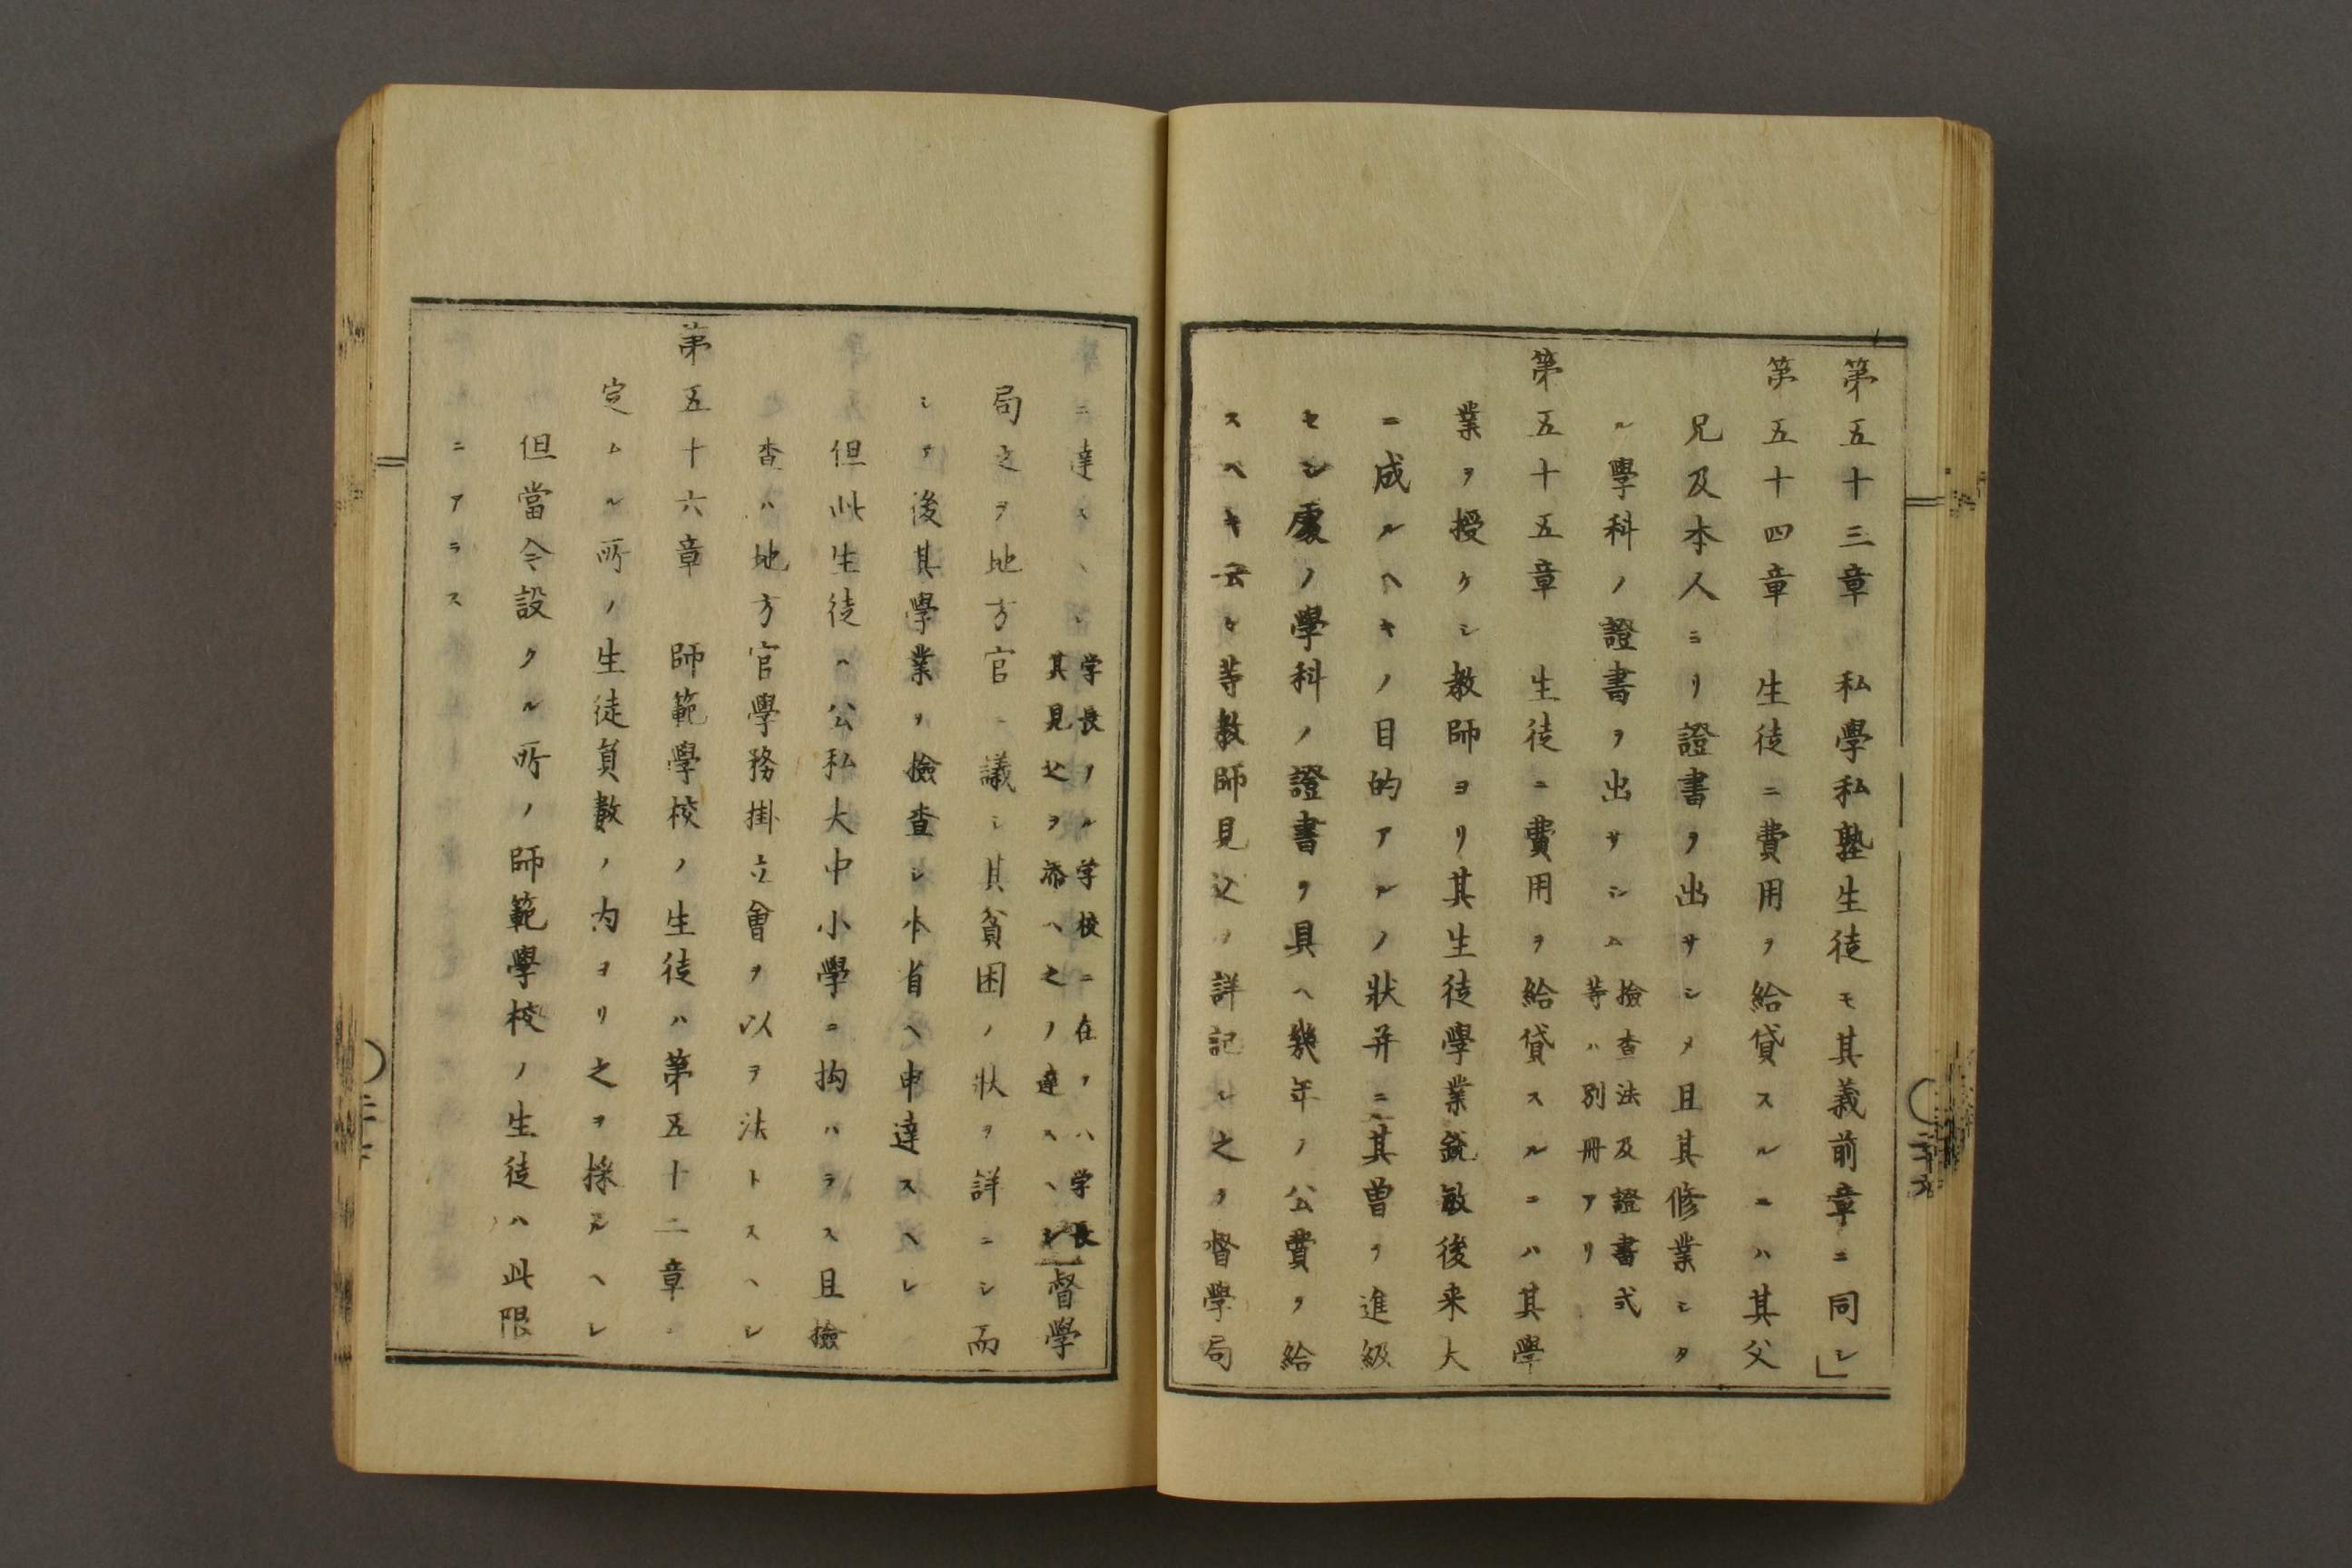 第五十三章　私學私塾生徒モ其義前章ニ同シ」
第五十四章　生徒ニ費用ヲ給貸スルニハ其父
兄及本人ヨリ證書ヲ出サシメ且其修業シタ
ル學科ノ證書ヲ出サシム
檢査法及證書式
等ハ別冊アリ
第五十五章　生徒ニ費用ヲ給貸スルニハ其學
業ヲ授ケシ教師ヨリ其生徒學業鋭敏後来大
ニ成ルヘキノ目的アルノ狀并ニ其曽ヲ進級
セシ處ノ學科ノ證書ヲ具ヘ幾年ノ公費ヲ給
スヘキ云々等教師見込ヲ詳記シ之ヲ督學局
ニ達スヘシ
学長アル学校ニ在テハ学長
其見込ヲ添ヘ之ノ達スヘシ
督學
局之ヲ地方官ニ議シ其貧困ノ狀ヲ詳ニシ而
シテ後其學業ヲ檢査シ本省ヘ申達スヘシ
但此生徒ハ公私大中小學ニ拘ハラス且檢
査ハ地方官學務掛立會ヲ以テ法トスヘシ
第五十六章　師範學校ノ生徒ハ第五十二章
定ムル所ノ生徒員數ノ内ヨリ之ヲ採ルヘシ
但當今設クル所ノ師範學校ノ生徒ハ此限
ニアラス
二十九